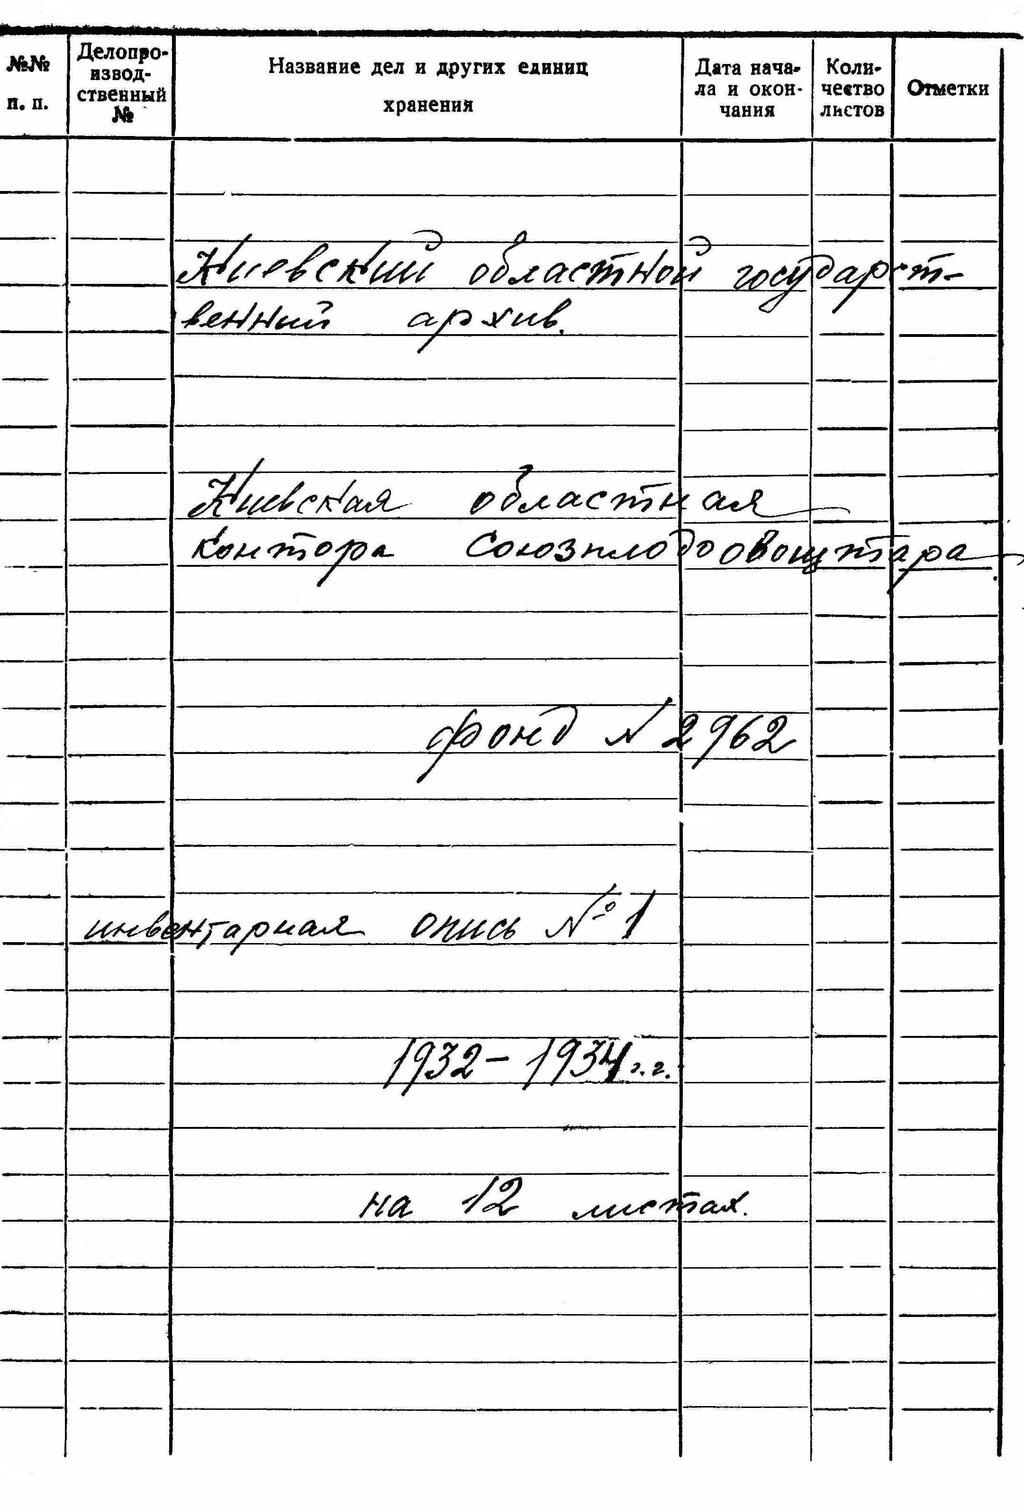 №№ п. п.
Делопро-
извод-
ственный
№
Название дел и других единиц
хранения
Дата нача-
ла и окон-
чания
Коли-
чество
листов
Отметки
Киевский областной государст-
венный архив.
Киевская областная
контора Союзплодоовощтара
фонд N 2962
инвентарная опись № 1
1932 - 1934 г.г.
на 12 листах.